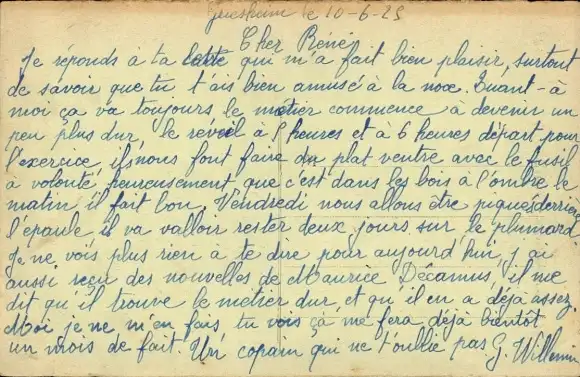 le 10-6-25
Cher Réné
Je réponds à ta lettre qui m'a fait bien plaisir, surtout
de savoir que tu t'ais bien amusé à la noce. Quant-à
moi ça va toujours le métier commence à devenir un
peu plus dur, le réveil à 5 heures et à 6 heures départ pour
l'exercice, ils nous font faire du plat ventre avec le fusil
à volonté, heureusement que c'est dans les bois à l'ombre le
matin il fait bon. Vendredi nous allons être piqués derrière
l'épaule il va valloir rester deux jours sur le plumard
Je ne vois plus rien à te dire pour aujourd'hui, j'ai
aussi reçu des nouvelles de Maurice Décamus, il me
dit qu'il trouve le métier dur et qu'il en a déjà assez.
Moi je ne m'en fais tu vois ça me fera déjà bientôt
un mois de fait. Un copain qui ne t'oublie pas G. Willemin